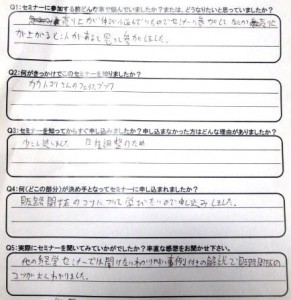 Q1:セミナーに参加する前どんな事で悩んでいましたか?または、どうなりたいと思っていましたか?
売り上げが伸び悩んでいたのでセミナーに参加して
が上がるヒントがあると思って参加しました。
Q2:何がきっかけでこのセミナーを知りましたか?
さんのフェイスブック
Q3:セミナーを知ってからすぐ申し込みましたか?申しこまなかった方はどんな理由がありましたか?
少し 日程調整のため
Q4:何(どこの部分)が決め手となってセミナーに申し込まれましたか?
販路開拓のコツについて学びたいので申し込みしました。
Q5:実際にセミナーを聞いてみていかがでしたか?率直な感想をお聞かせ下さい。
他の経営セミナーでは聞けないわかりやすい事例付きの解説で販路開拓の
コツがよくわかりました。